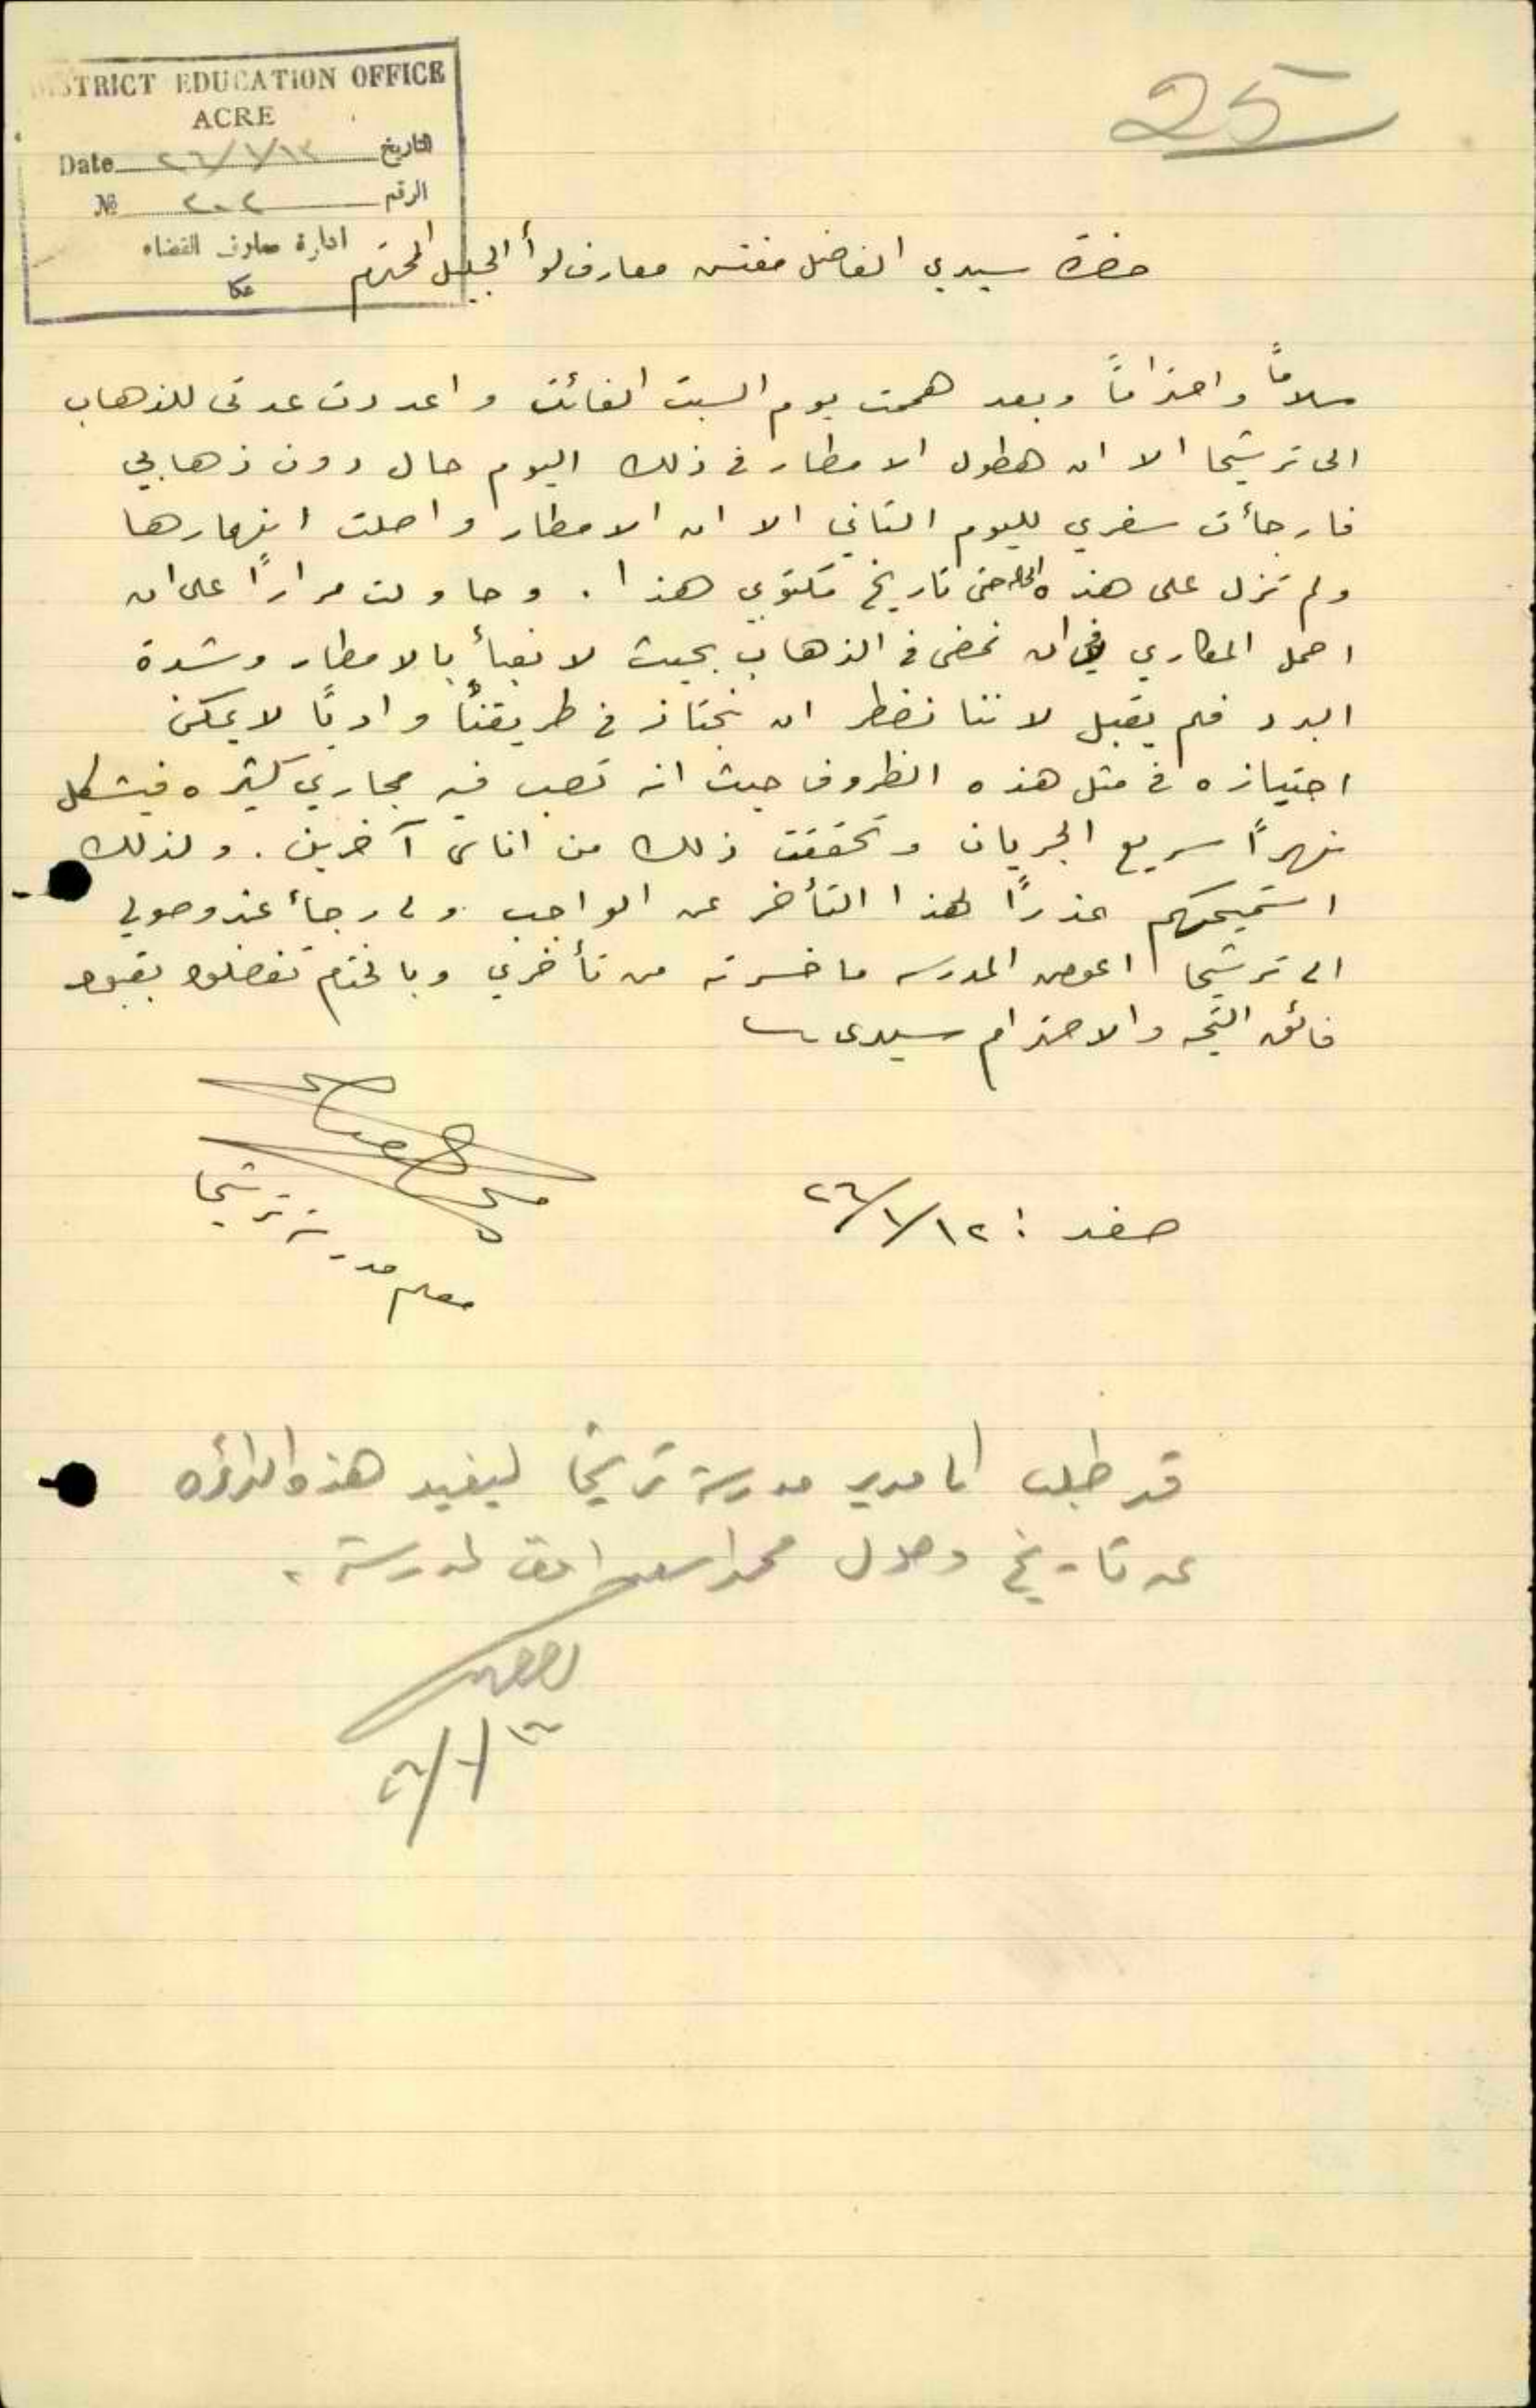 25
DISTRICT EDUCATION OFFICE
ACRE
Date ٢٦/١/١٣ التاريخ
№ ٢٠٢ الرقم
ادارة معارف القضاء
عكا
حضرة سيدي الفاضل مفتش معارف لوأ الجليل المحترم
سلاماً واحتراماً وبعد هممت يوم السبت الفائت واعددت عدتى للذهاب
الى ترشيحا الا ان هطول الامطار في ذلك اليوم حال دون ذهابي
فارجأت سفري لليوم الثاني الا ان الامطار واصلت انهمارها
ولم تزل على هذه الحاله حتى تاريخ مكتوبي هذا . وحاولت مراراً على ان
احمل المكاري في ان نمضى في الذهاب بحيث لا نعبأ بالامطار وشدة
البرد فلم يقبل لاننا نضطر ان نجتاز في طريقنا وادياً لا يمكن
اجتيازه في مثل هذه الظروف حيث انه تصب فيه مجاري كثيره فيشكل
نهراً سريع الجريان وتحققت ذلك من اناس آخرين . ولذلك
استميحكم عذراً لهذا التأخر عن الواجب ولي رجأ عند وصولي
الى ترشيحا اعوض المدرسه ما خسرته من تأخري وبالختام تفضلوا بقبول
فائق التحيه والاحترام سيدى
معلم مدرسة ترشيحا
صفد : ٢٦/١/١٢
قد طلب الى مدير مدرسة ترشيحا ليفيد هذه الدائره
عن تاريخ وصول محمد اسعد افندي لمدرسته .
٢٦/١/١٣